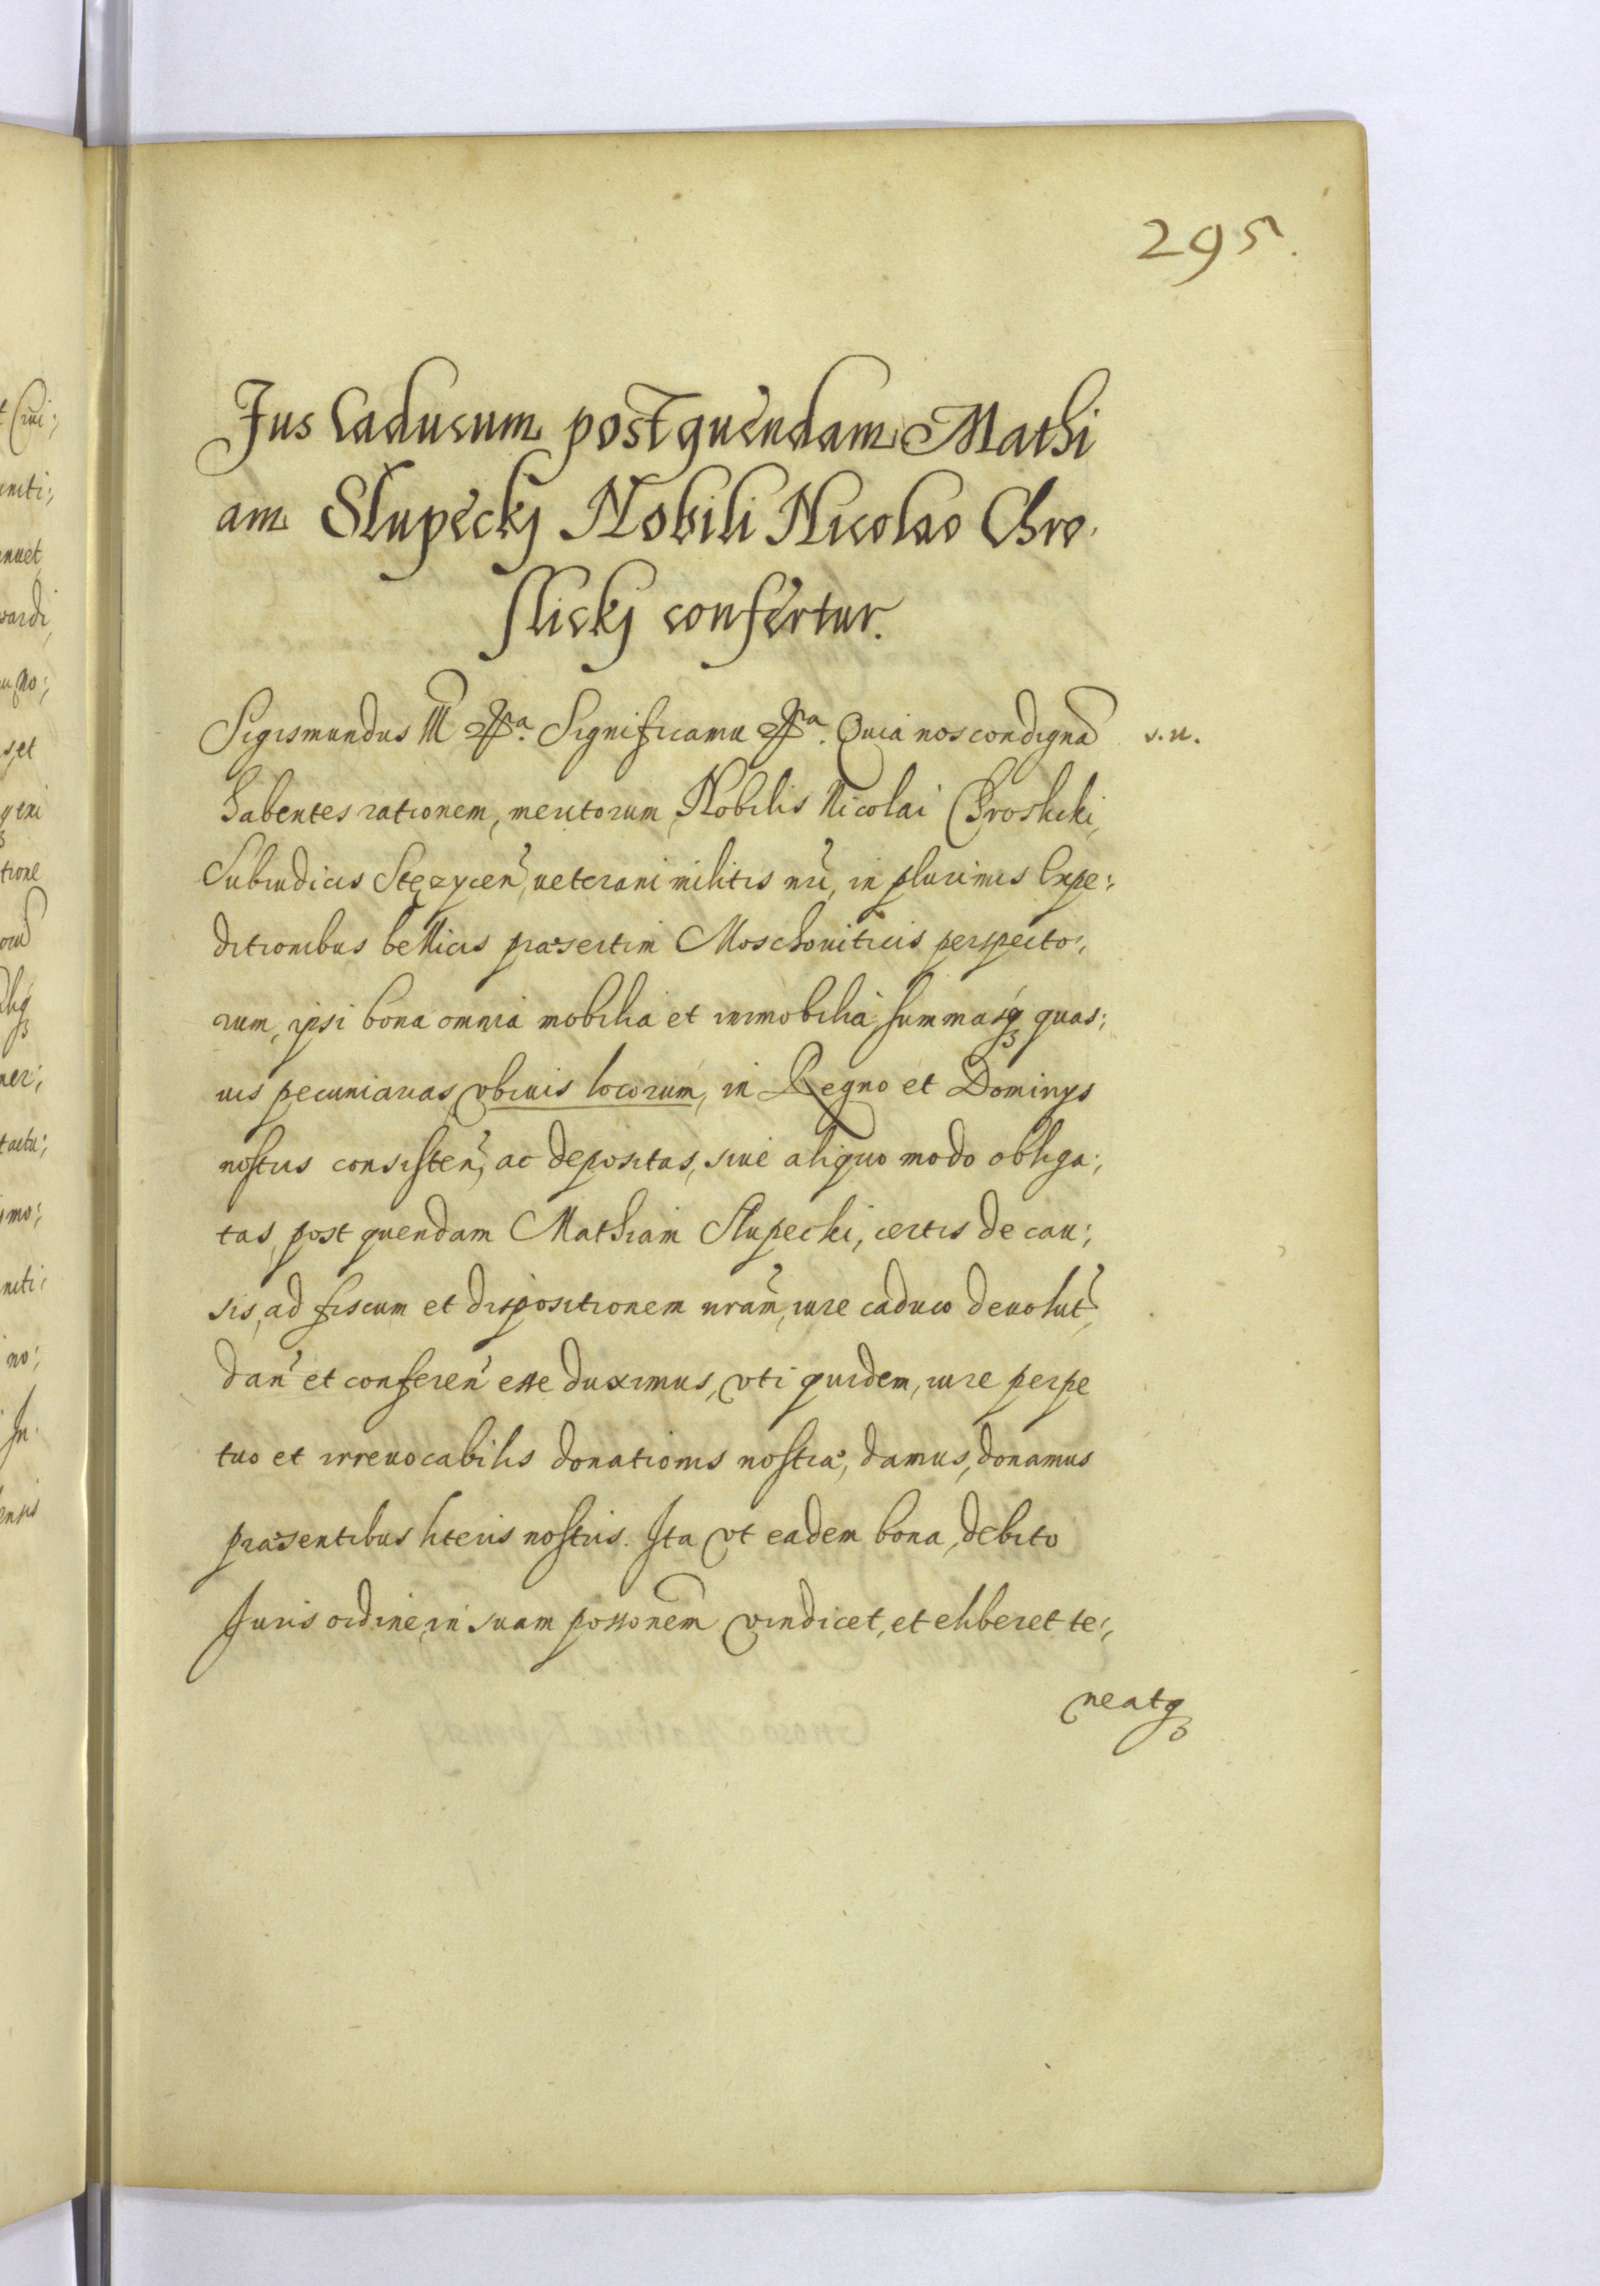 295.
Jus Caducum post quendam Mathi
am Slupeckj Nobili Nicolao Chro.
slickj confertur.
Sigismundus III Significamu Quia nos condignã s.n.
habentes rationem, meritorum Nobilis Nicolai Chroslicki,
Subiudicis Stęzycen̄, veterani militis nr̄i, in plurimis Expe:
ditionibus bellicis præsertim Moschouiticis perspecto:,
rum, ipsi bona omnia mobilia et immobilia, summasq3 quas:
uis pecuniarias, vbiuis locorum, in Regno et Dominijs
nostris consisten̄, ac depositas, siue aliquo modo obliga:,
tas, post quendam Mathiam Slupecki, certis de cau:,
sis, ad fiscum et dispositionem nr̄am, iure caduco deuolut̄,
dan̄ et conferen̄ esse duximus, vti quidem, iure perpe
tuo et irreuocabilis donationis nostræ, damus, donamus
præsentibus literis nostris. Ita vt eadem bona, debito
Juris ordine, in suam possonem̄ vindicet, et eliberet te:,
neatq3